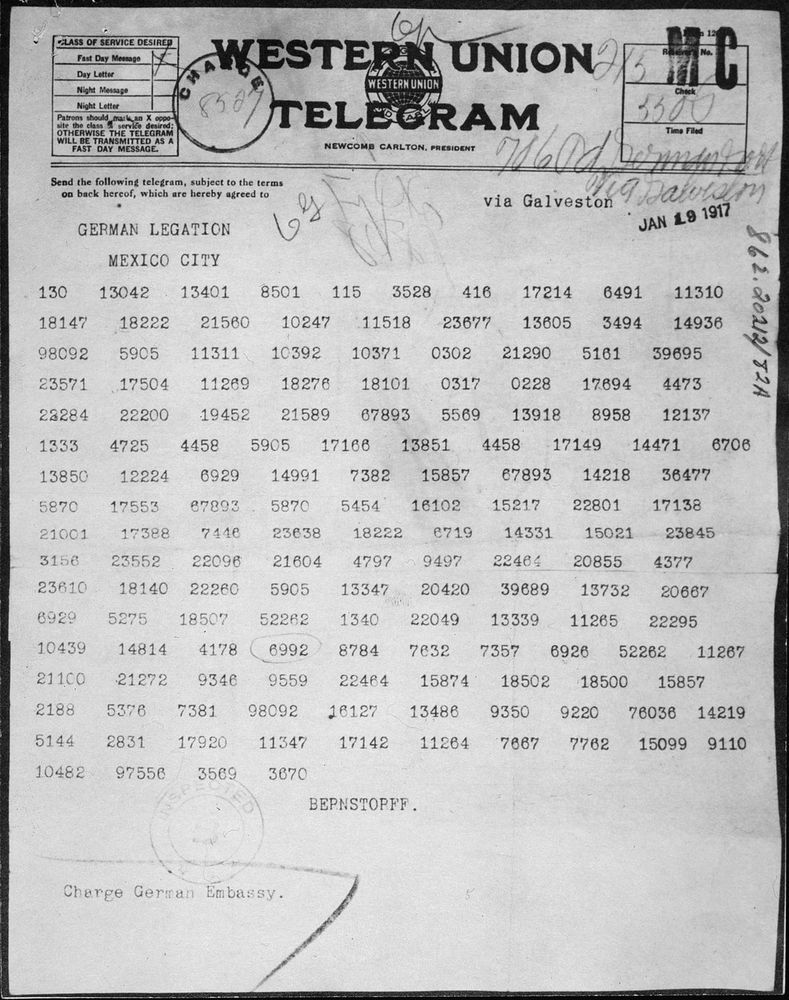 CLASS OF SERVICE DESIRED
Fast Day Message
Day Letter
Night Message
Night Letter
Patrons should mark an X oppo-
site the class of service desired:
OTHERWISE THE TELEGRAM
WILL BE TRANSMITTED AS A
FAST DAY MESSAGE.
CHARGE
WESTERN UNION
WESTERN UNION
TELEGRAM
NEWCOMB CARLTON, PRESIDENT
No.
Check
Time Filed
Send the following telegram, subject to the terms
on back hereof, which are hereby agreed to
via Galveston
via Galveston
JAN 19 1917
GERMAN LEGATION
MEXICO CITY
862.20212/82A
130 13042 13401 8501 115 3528 416 17214 6491 11310
18147 18222 21560 10247 11518 23677 13605 3494 14936
98092 5905 11311 10392 10371 0302 21290 5161 39695
23571 17504 11269 18276 18101 0317 0228 17694 4473
22284 22200 19452 21589 67893 5569 13918 8958 12137
1333 4725 4458 5905 17166 13851 4458 17149 14471 6706
13850 12224 6929 14991 7382 15857 67893 14218 36477
5870 17553 67893 5870 5454 16102 15217 22801 17138
21001 17388 7446 23638 18222 6719 14331 15021 23845
3156 23552 22096 21604 4797 9497 22464 20855 4377
23610 18140 22260 5905 13347 20420 39689 13732 20667
6929 5275 18507 52262 1340 22049 13339 11265 22295
10439 14814 4178 6992 8784 7632 7357 6926 52262 11267
21100 21272 9346 9559 22464 15874 18502 18500 15857
2188 5376 7381 98092 16127 13486 9350 9220 76036 14219
5144 2831 17920 11347 17142 11264 7667 7762 15099 9110
10482 97556 3569 3670
BERNSTORFF.
INSPECTED
Charge German Embassy.